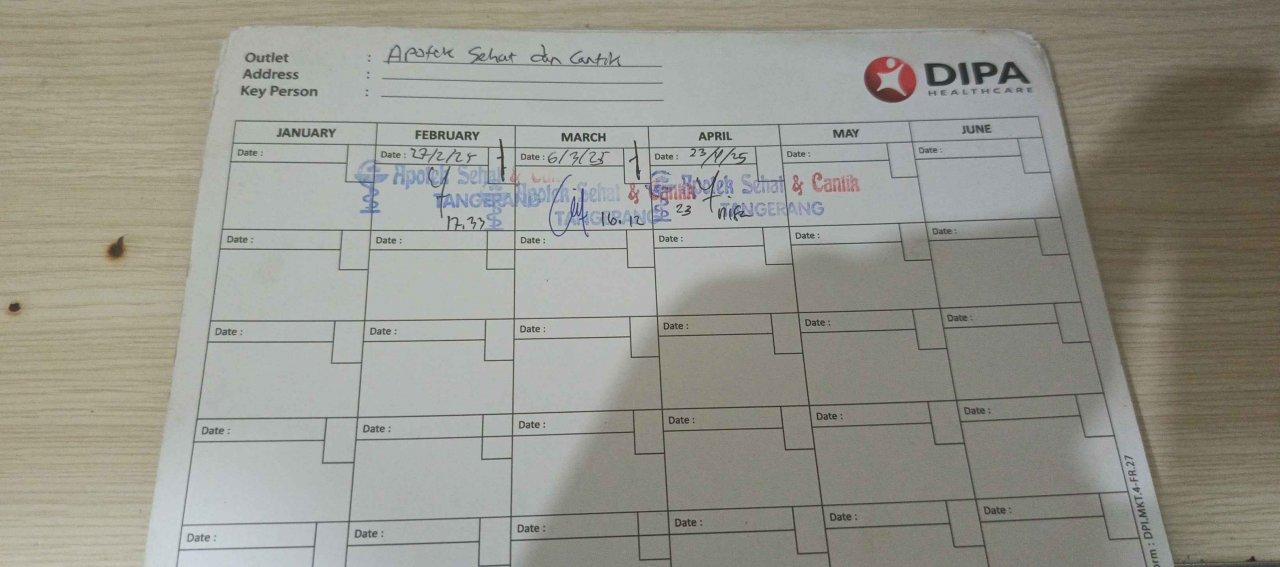 Outlet : Apotek Sehat dan Cantik
Address :
Key Person :
DIPA
HEALTHCARE
JANUARY FEBRUARY MARCH APRIL MAY JUNE
Date : Date : 27/2/25 Date : 6/3/25 Date : 23/4/25 Date : Date :
Apotek Sehat & Apotek Sehat & Cantik Apotek Sehat & Cantik
TANGERANG TANGERANG TANGERANG
17.33 16.12 23
Date : Date : Date : Date : Date : Date :
Date : Date : Date : Date : Date : Date :
Date : Date : Date : Date : Date : Date :
Date : Date : Date : Date : Date : Date :
orm : DPI.MKT.4-FR.27